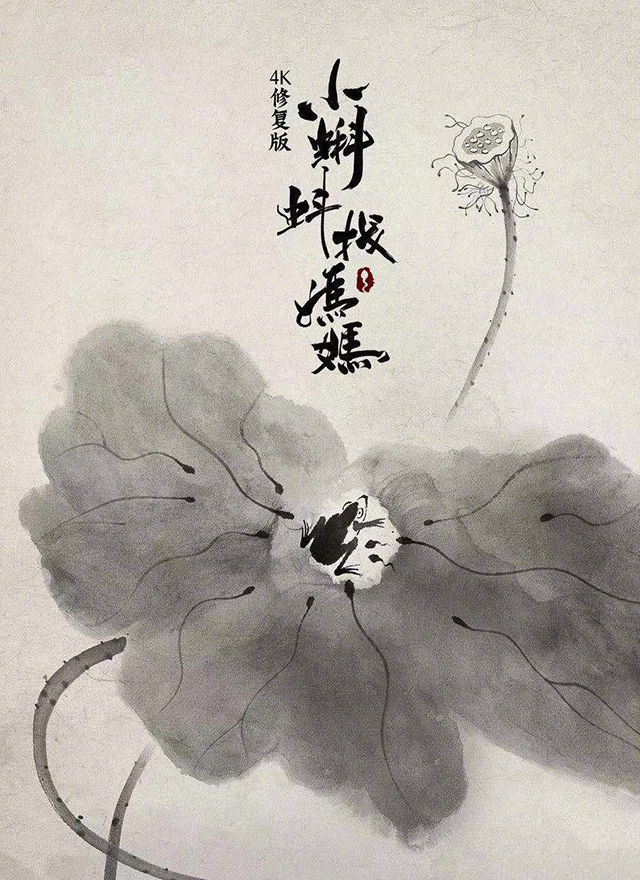 小蝌蚪找媽媽
4K修复版